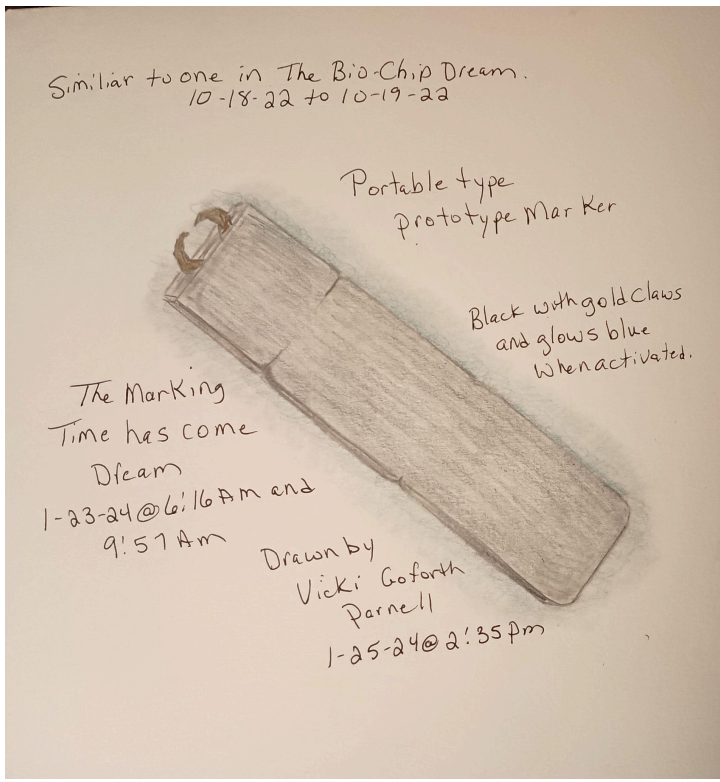 Similiar to one in The Bio-Chip Dream.
10-18-22 to 10-19-22
Portable type
Prototype Marker
Black with gold Claws
and glows blue
When activated.
The Marking
Time has come
Dream
1-23-24 @ 6:16 AM and
9:57 AM
Drawn by
Vicki Goforth
Parnell
1-25-24 @ 2:35 pm